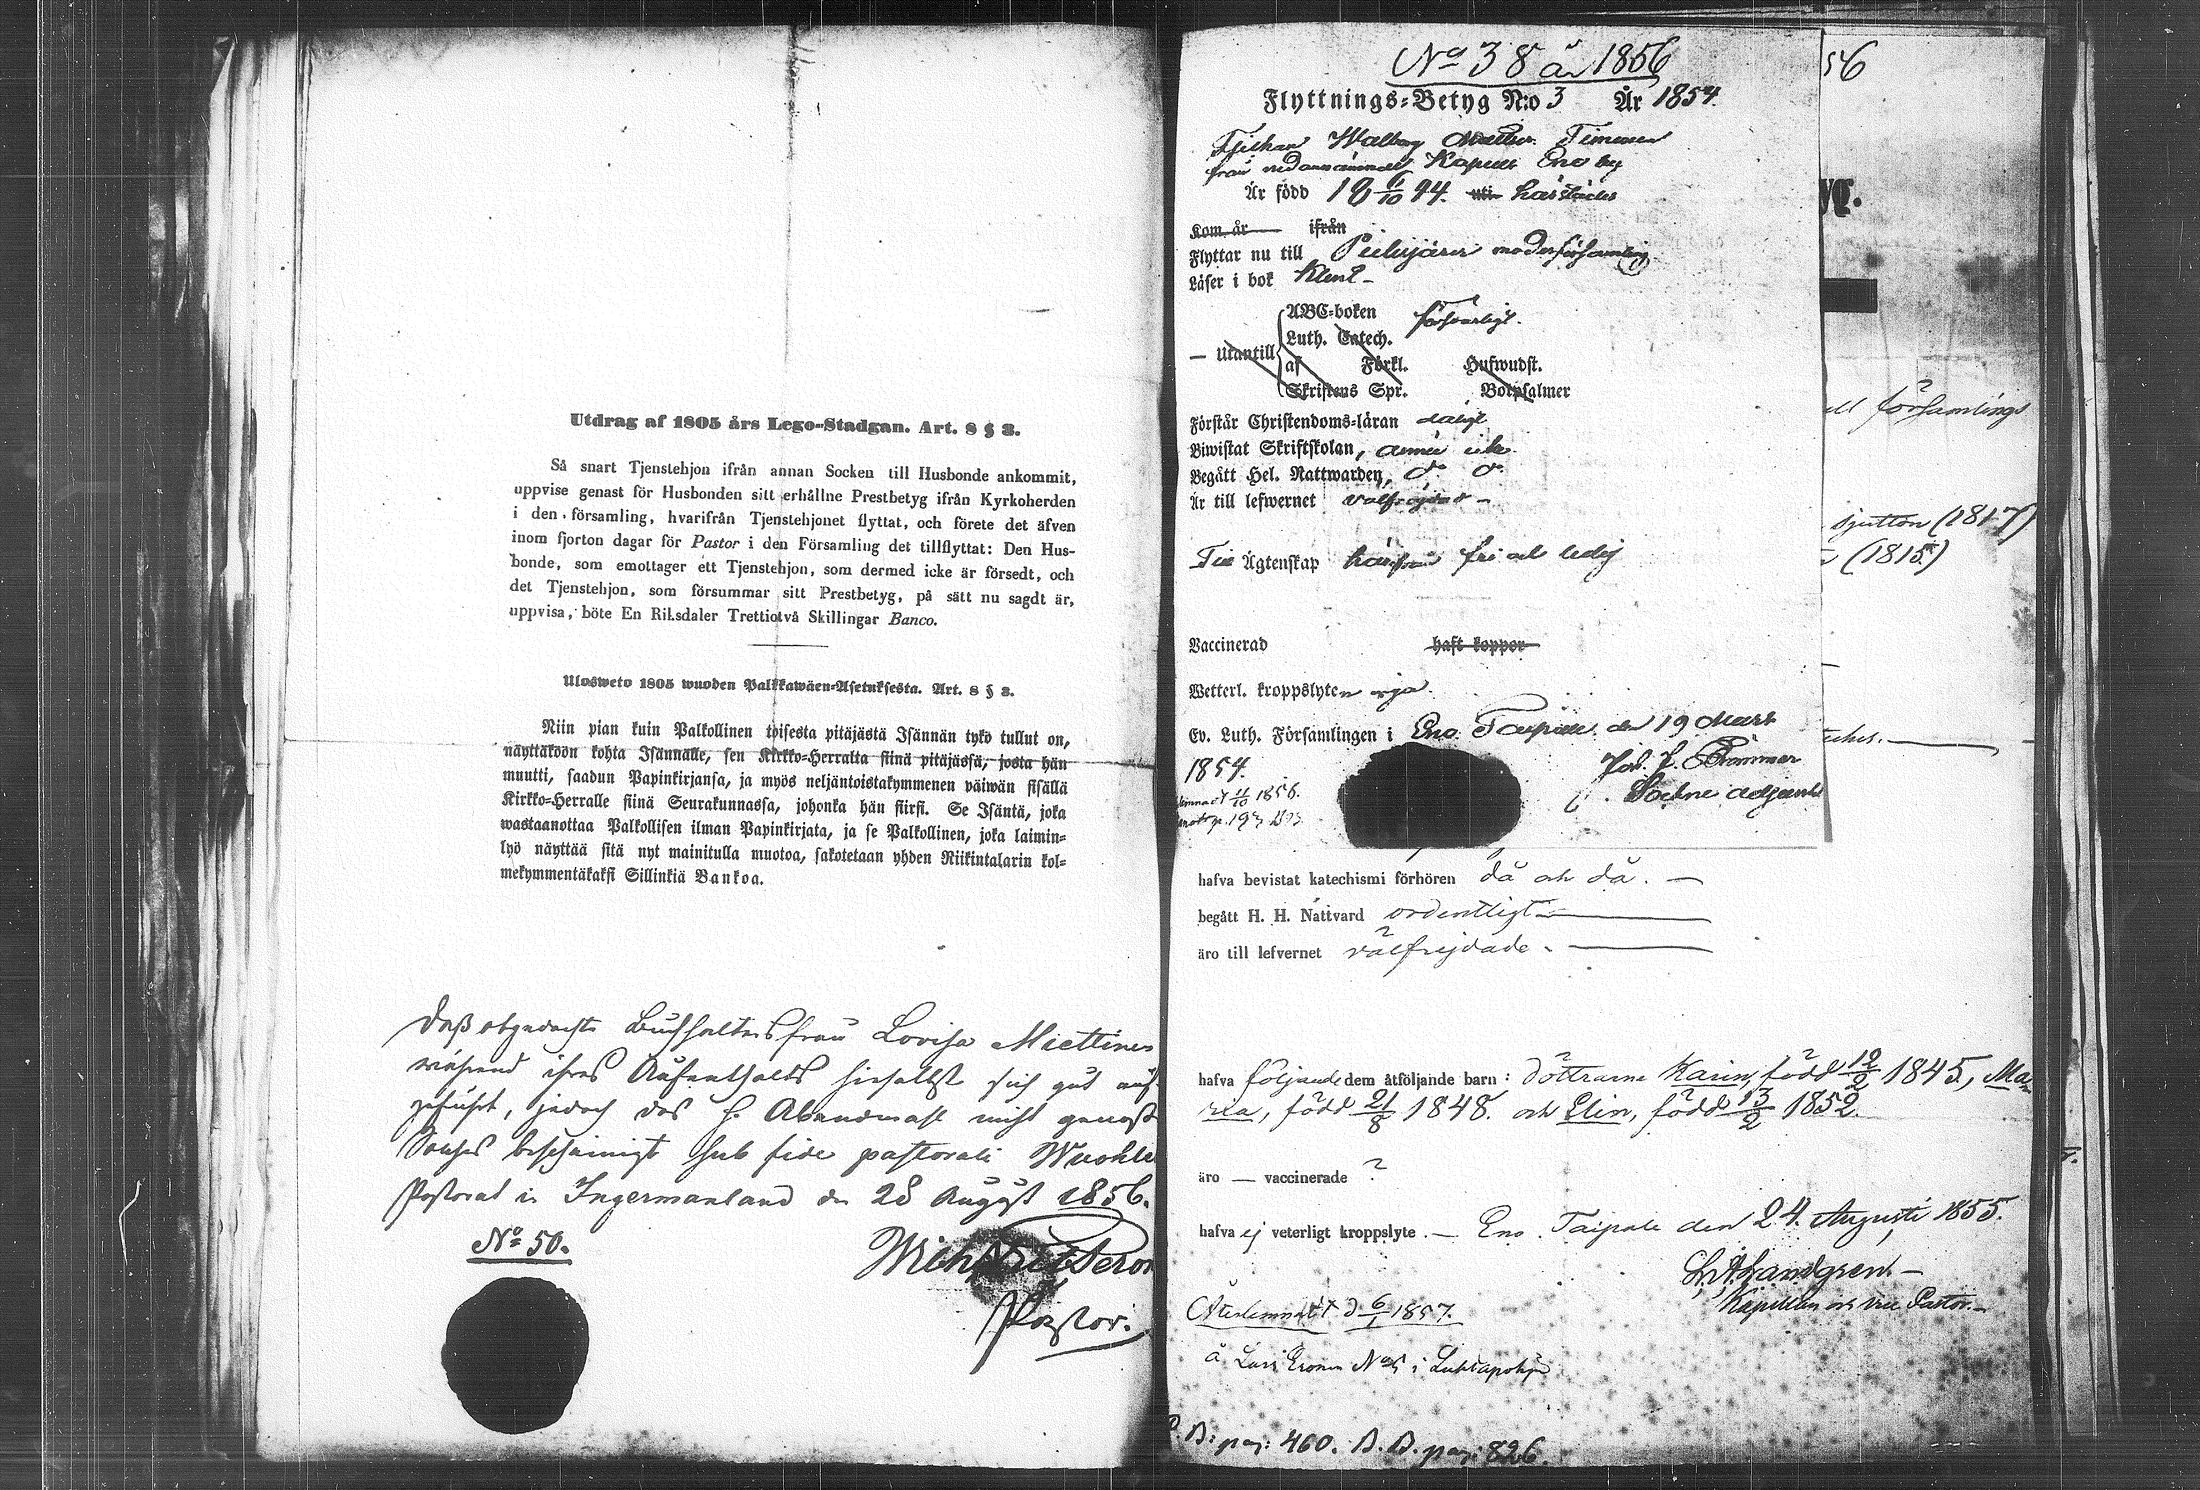 Utdrag af 1805 års Lego-Stadgan. Art. 8 § 3.
Så snart Tjenstehjon ifrån annan Socken till Husbonde ankommit,
uppvise genast för Husbonden sitt erhållne Prestbetyg ifrån Kyrkoherden
i den församling, hvarifrån Tjenstehjonet flyttat, och förete det äfven
inom fjorton dagar för Pastor i den Församling det tillflyttat: Den Hus-
bonde, som emottager ett Tjenstehjon, som dermed icke är försedt, och
det Tjenstehjon, som försummar sitt Prestbetyg, på sätt nu sagdt är,
uppvisa, böte En Riksdaler Trettiotvå Skillingar Banco.
Ulosweto 1805 wuoden Palkkawäen-Asetuksesta. Art. 8 § 3.
Niin pian kuin Palkollinen toisesta pitäjästä Isännän tykö tullut on,
näyttäköön kohta Isännälle, sen Kirkko-Herralta siinä pitäjässä, josta hän
muutti, saadun Papinkirjansa, ja myös neljäntoistakymmenen päiwän sisällä
Kirkko-Herralle siinä Seurakunnassa, johonka hän siirsi. Se Isäntä, joka
wastaanottaa Palkollisen ilman Papinkirjata, ja se Palkollinen, joka laimin-
lyö näyttää sitä nyt mainitulla muotoa, sakotetaan yhden Riikintalarin kol-
mekymmentäkaksi Sillinkiä Bankoa.
Daß obgedachte Buchhaltersfrau Lovisa Miettinen
während ihres Aufenthalts hieselbst sich gut auf-
geführt, jedoch das h. Abendmahl nicht
Solches bescheinigt sub fide pastorali
Pastorat in Ingermanland den 28 August 1856.
No 50.
Pastor.
No 38 år 1856
Flyttnings-Betyg N:o 3 År 1854.
Walborg Timonen
från Kapell Eno by
Är född 18 6/10 44. uti härstädes
Kom. år ifrån
Flyttar nu till Pielisjärvi moderförsamling
Läser i bok klent
ABC-boken försvarligt.
Luth. Catech.
Utantill af Förkl. Hufwudst.
Skriftens Spr. Botpsalmer
Förstår Christendoms-läran dåligt
Biwistat Skriftskolan, ännu icke
Begått Hel. Nattwarden, do do
Är till lefwernet välfrejdad
Till Ägtenskap härifrån fri och ledig
Vaccinerad haft koppor
Wetterl. kroppslyten ega
Ev. Luth. Församlingen i Eno Taipale den 19 Mart
1854.
11/10 1856.
Sockne adjunkt
56
yg.
församlings
sjutton (1817)
(1815)
hafva bevistat katechismi förhören då och då.
begått H. H. Nattvard ordentligt
äro till lefvernet välfrejdade
hafva följande dem åtföljande barn: döttrarne Karin, född 12/2 1845, Ma-
ria, född 21/8 1848. och Elin, född 13/2 1852.
äro — vaccinerade ?
hafva ej veterligt kroppslyte. — Eno Taipale den 24. Augusti 1855.
Landgren
Kapellan och vice Pastor.
Återlemnadt d 6/1 1857.
å Lars Eronen No 5 i Luhtapohja
B: pag: 460. B. B. pag: 826.